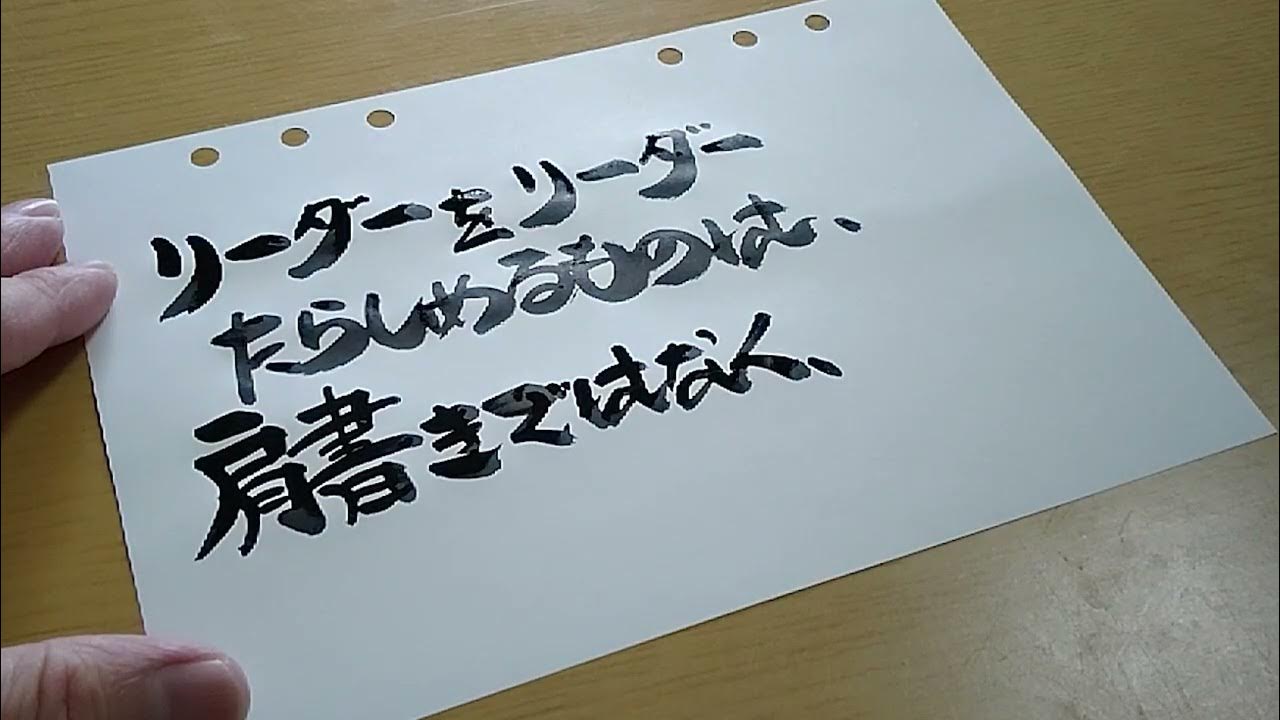 リーダーをリーダー
たらしめるものは、
肩書きではなく、